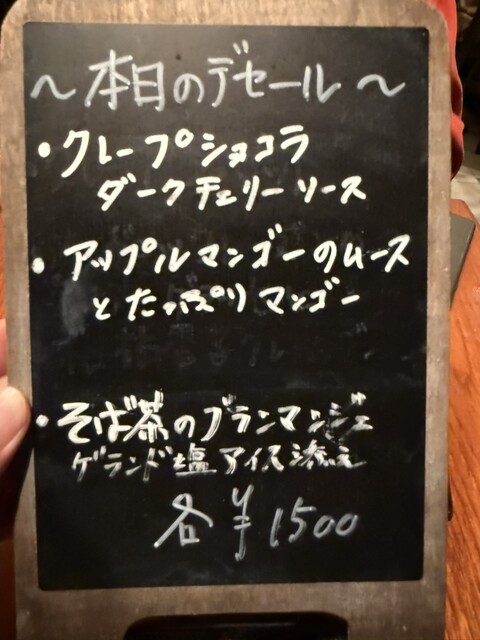 ～本日のデセール～
・クレープショコラ
ダークチェリーソース
・アップルマンゴーのムース
とたっぷりマンゴー
・そば茶のブランマンジェ
ゲランド塩アイス添え
各¥1500